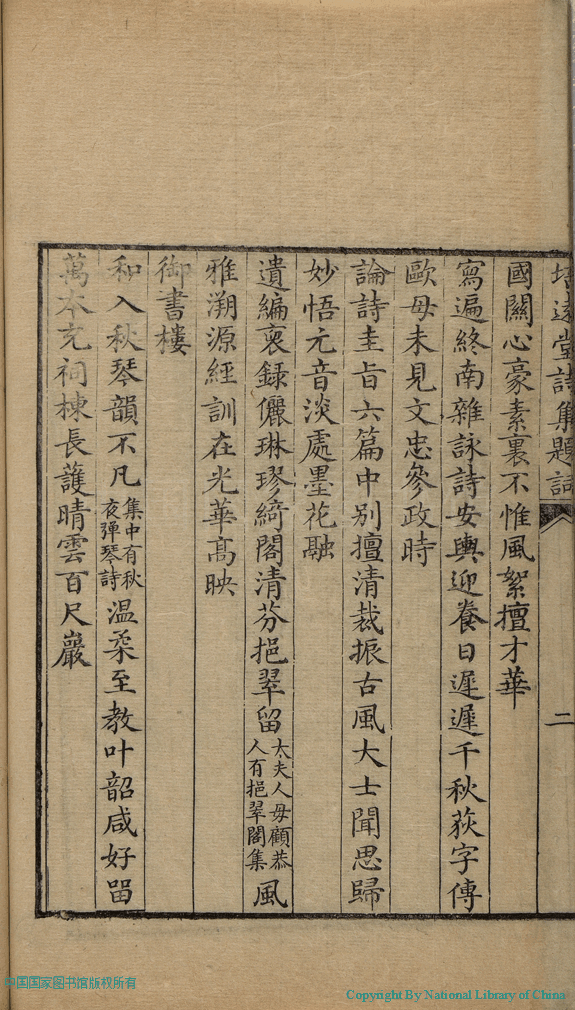 培遠堂詩集題詞
二
國關心豪素裏不惟風絮擅才華
寫遍終南雜詠詩安輿迎養日遲遲千秋荻字傳
歐母未見文忠參政時
論詩圭旨六篇中別擅清裁振古風大士聞思歸
妙悟元音淡處墨花融
遺編裒錄儷琳璆綺閣清芬挹翠留太夫人母顧恭人有挹翠閣集風
雅溯源經訓在光華高映
御書樓
和入秋琴韻不凡集中有秋夜彈琴詩温柔至教叶韶咸好留
萬本充祠棟長護晴雲百尺巖
中国国家图书馆版权所有
Copyright By National Library of China